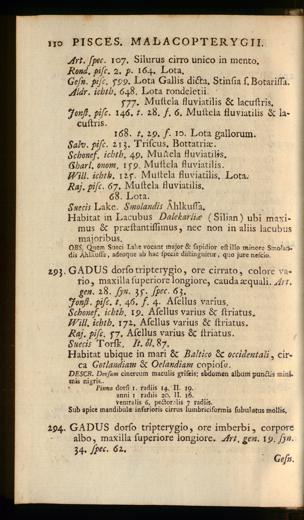 110 PISCES. MALACOPTERYGII.
Art. spec. 107. Silurus cirro unico in mento.
Rond. pisc. 2. p. 164. Lota.
Gesn. pisc. 599. Lota Gallis dicta, Stinsia s. Botarissa.
Aldr. ichth. 648. Lota rondeletii.
577. Mustela fluviatilis & lacustris.
Jonst. pisc. 146. t. 28. f. 6. Mustela fluviatilis & la-
custris.
168. t. 29. f. 10. Lota gallorum.
Salv. pisc. 213. Triscus, Bottatriæ.
Schonef. ichth. 49. Mustela fluviatilis.
Charl. onom. 159. Mustela fluviatilis.
Will. ichth. 125. Mustela fluviatilis, Lota.
Raj. pisc. 67. Mustela fluviatilis.
68. Lota.
Suecis Lake. Smolandis Åhlkussa.
Habitat in Lacubus Dalekarliæ (Silian) ubi maxi-
mus & præstantissimus, nec non in aliis lacubus
majoribus.
OBS. Quem Sueci Lake vocant major & sapidior est illo minore Smolan-
dis Åhlkussa, adeoque ab hac specie distinguitur, quo jure nescio.
293. GADUS dorso tripterygio, ore cirrato, colore va-
rio, maxilla superiore longiore, cauda æquali. Art.
gen. 28. syn. 35. spec. 63.
Jonst. pisc. t. 46. f. 4. Asellus varius.
Schonef. ichth. 19. Asellus varius & striatus.
Will. ichth. 172. Asellus varius & striatus.
Raj. pisc. 57. Asellus varius & striatus.
Suecis Torsk. It. öl. 87.
Habitat ubique in mari & Baltico & occidentali, cir-
ca Gotlandiam & Oelandiam copiosus.
DESCR. Dorsum cinereum maculis griseis; abdomen album punctis mini-
mis nigris.
Pinna dorsi 1. radiis 14. II. 19.
anni 1 radiis 20. II. 16.
ventralis 6, pectoralis 7 radiis.
Sub apice mandibulæ inferioris cirrus lumbriciformis subulatus mollis.
294. GADUS dorso tripterygio, ore imberbi, corpore
albo, maxilla superiore longiore. Art. gen. 19. syn.
34. spec. 62.
Gesn.